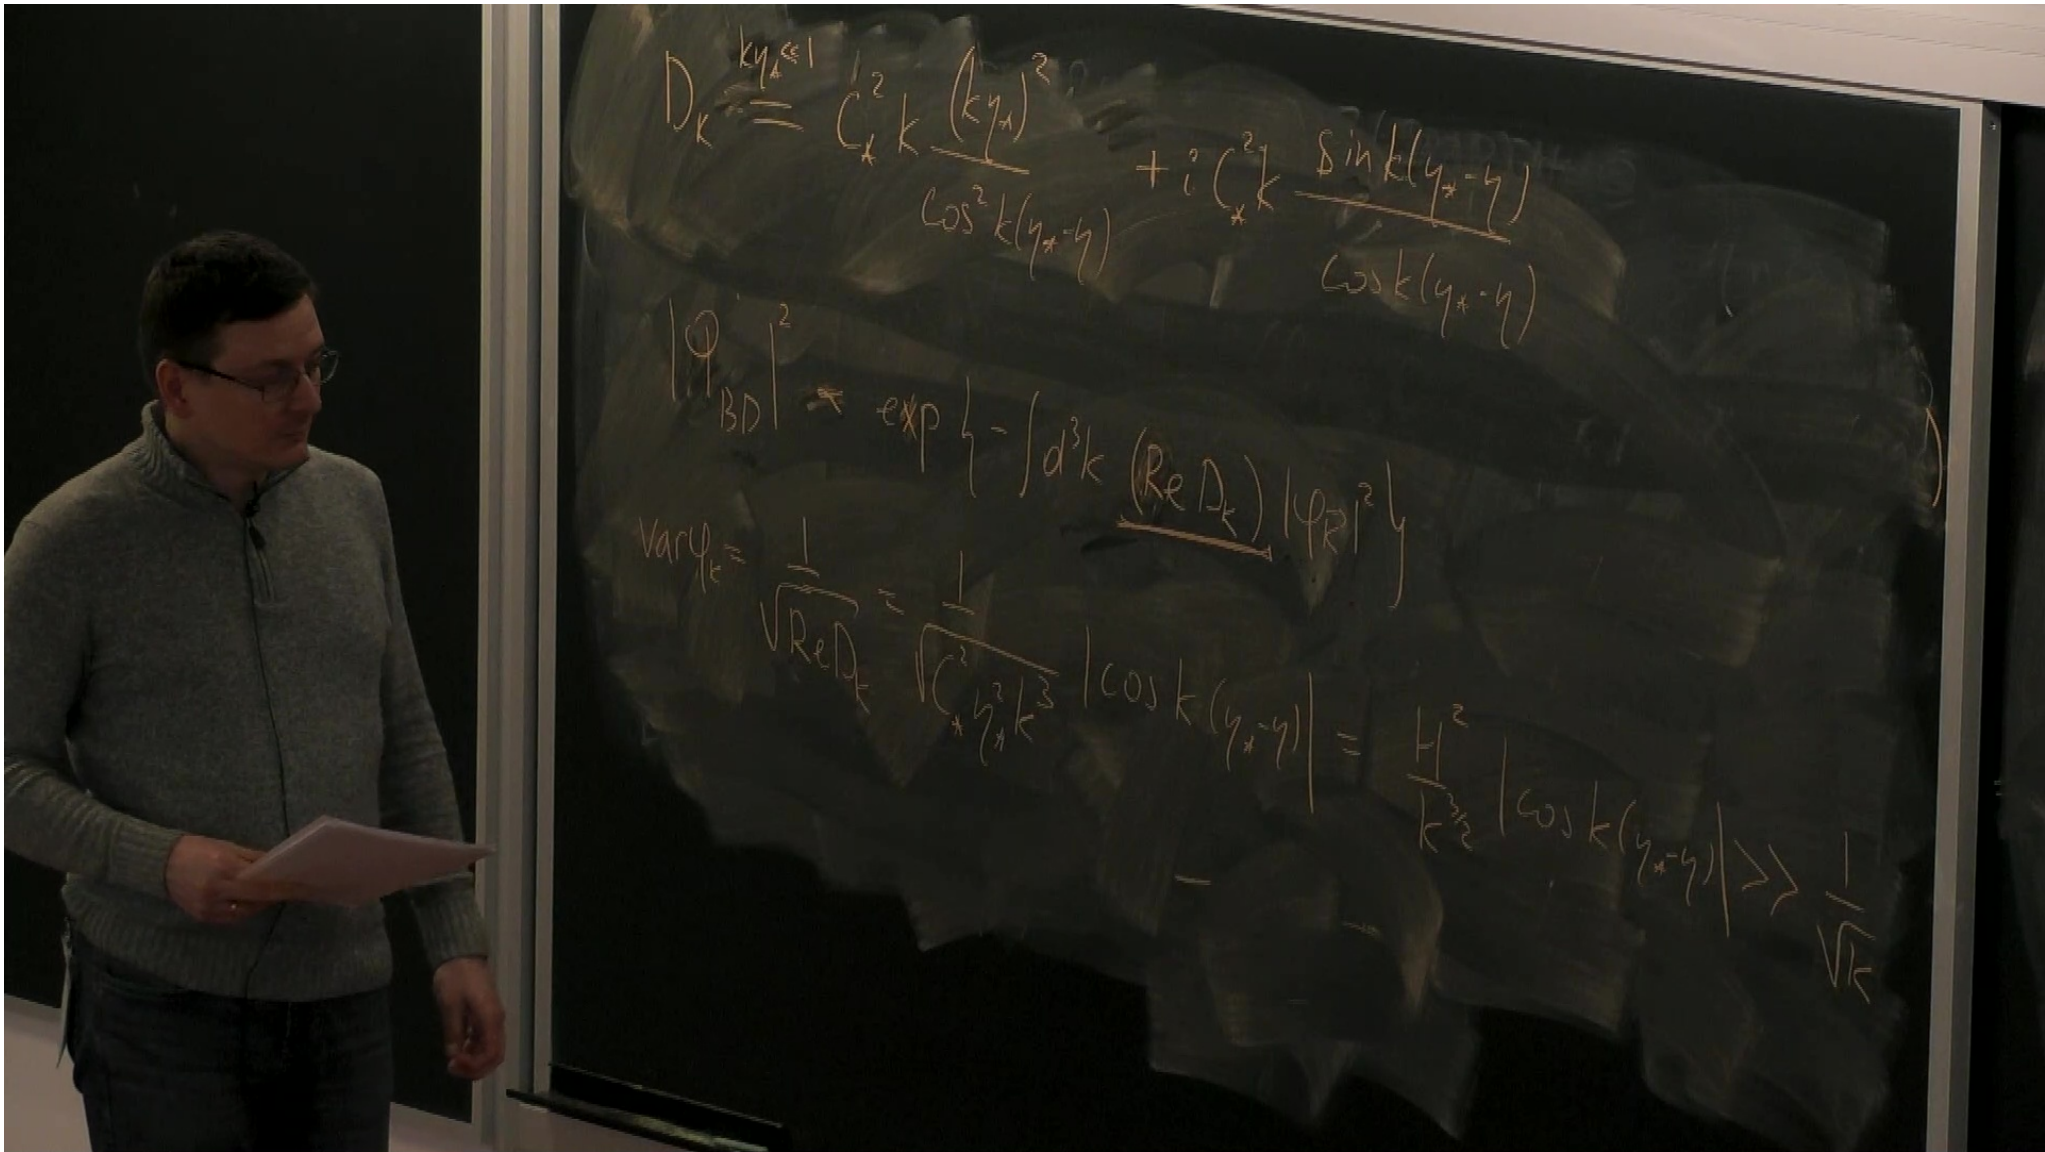 D_k \overset{kη_* ≪ 1}{=} C_*^2 k \frac{(kη_*)^2}{cos^2 k(η_*-η)} + i C_*^2 k \frac{sin k(η_*-η)}{cos k(η_*-η)}
|Ψ_{BD}|^2 = exp{ -∫ d^3k (Re D_k) |φ_{\vec{k}}|^2 }
var φ_k = \frac{1}{\sqrt{Re D_k}} ≈ \frac{1}{\sqrt{C_*^2 η_*^2 k^3}} |cos k(η_*-η)| = \frac{H^2}{k^{3/2}} |cos k(η_*-η)| >> \frac{1}{\sqrt{k}}